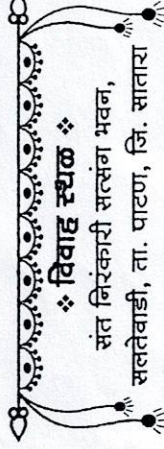 ❖ विवाह स्थळ ❖
संत निरंकारी सत्संग भवन,
सलतेवाडी, ता. पाटण, जि. सातारा